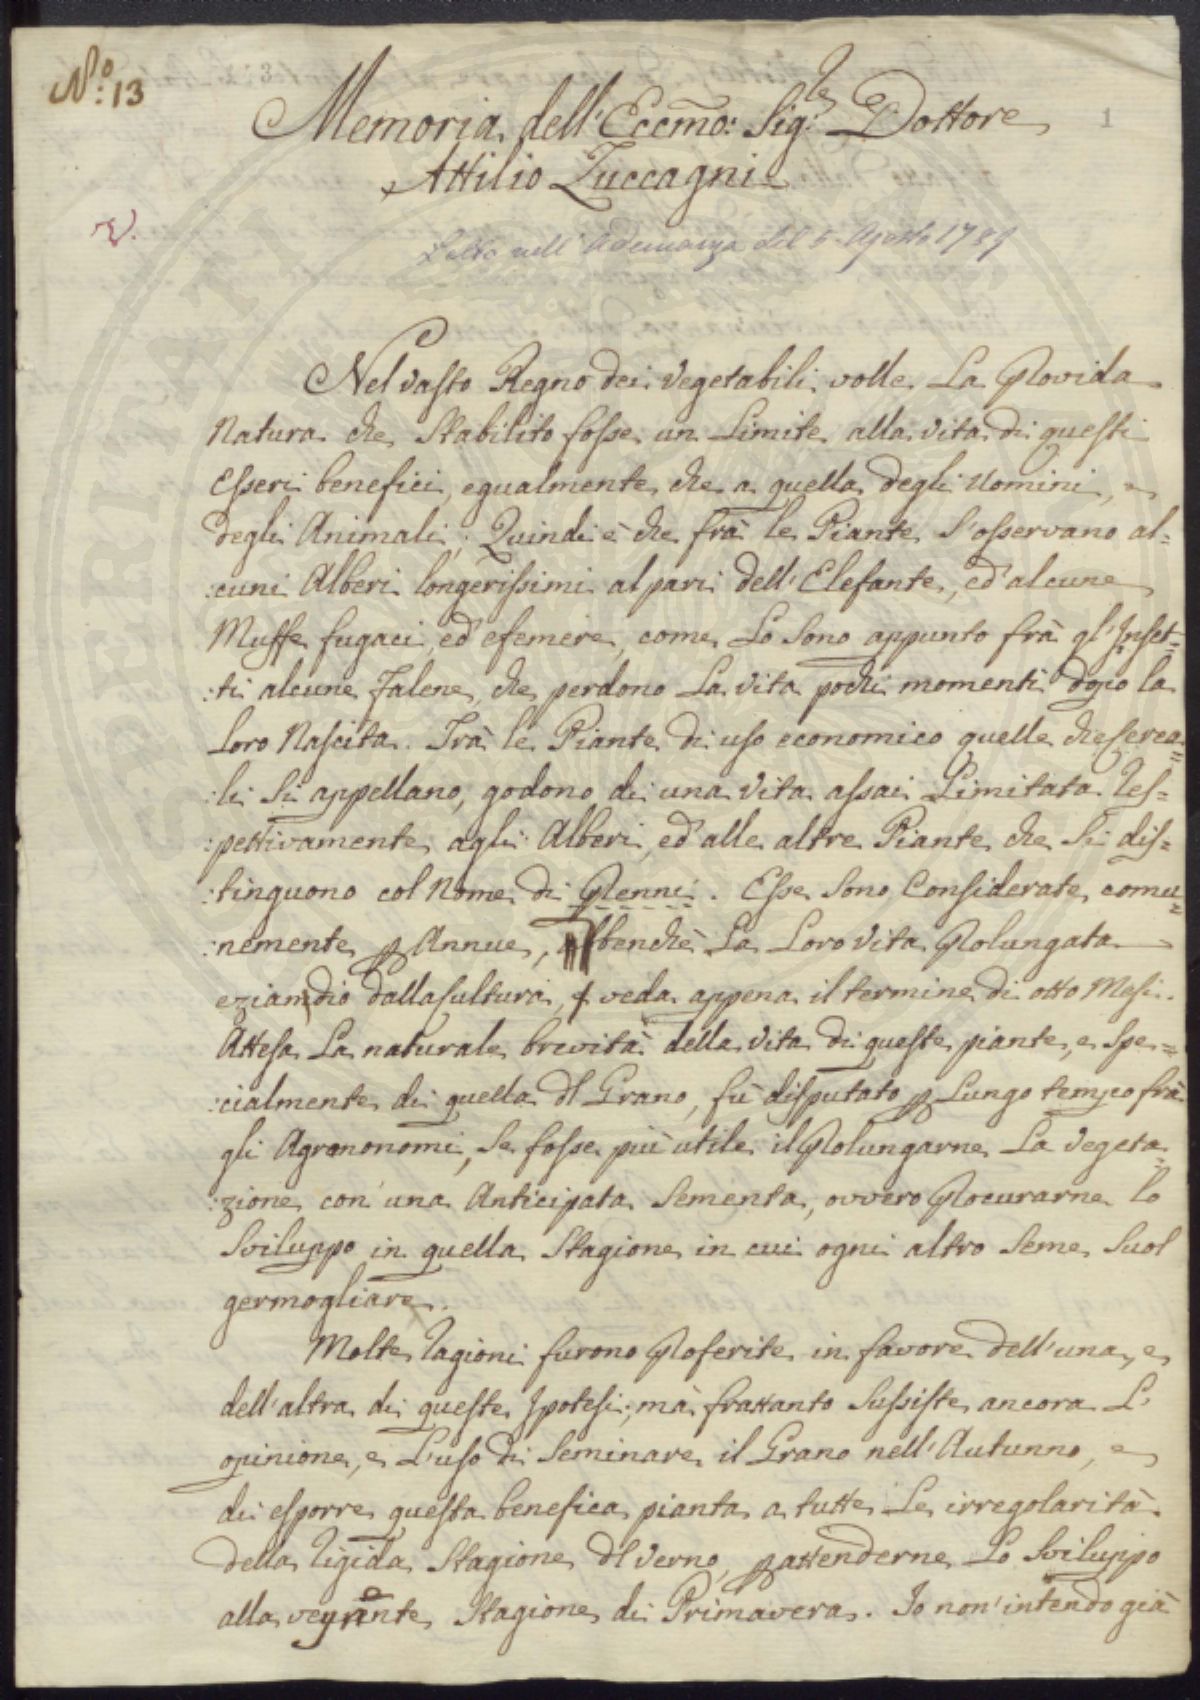 N.o 13
Memoria dell'Eccmo: Sig.le Dottore
1
Attilio Zuccagni
V.
Letta nell'Adunanza del 5. Agosto 1789
Nel vasto Regno dei Vegetabili volle La Provida
Natura che Stabilito fosse un Limite alla vita di questi
Esseri benefici, egualmente che a quella degli Uomini, e
degli Animali; Quindi è che frà le Piante s'osservano al=
:cuni Alberi longevissimi al pari dell'Elefante, ed alcune
Muffe fugaci, ed efemere, come Lo Sono appunto frà gl'Inset=
:ti alcune Falene, che perdono La vita pochi momenti dopo la
Loro Nascita. Trà le Piante di uso economico quelle che Cerea=
:li Si appellano, godono di una Vita assai Limitata Res=
:pettivamente agli Alberi, ed alle altre Piante che Si dis=
:tinguono col Nome di Perenni. Esse Sono Considerate comu=
:nemente per Annue, abbenchè La Loro vita Prolungata
eziandio dalla Cultura, ecceda appena il termine di otto Mesi.
Attesa La naturale brevità della vita di queste piante, e Spe=
:cialmente di quella dl Grano, fù disputato per Lungo tempo frà
gli Agrononomi, Se fosse più utile il Prolungarne La Vegeta=
:zione con'una Anticipata Sementa, ovvero Procurarne lo
Sviluppo in quella Stagione in cui ogni altro Seme Suol
germogliare.
Molte ragioni furono Proferite in favore dell'una, e
dell'altra di queste Ipotesi; mà frattanto Sussiste ancora L'
opinione, e L'uso di Seminare il Grano nell'Autunno, e
di esporre questa benefica pianta a tutte Le irregolarità
della rigida Stagione dl Verno, per attenderne Lo Sviluppo
alla vegnente Stagione di Primavera. Io non'intendo già